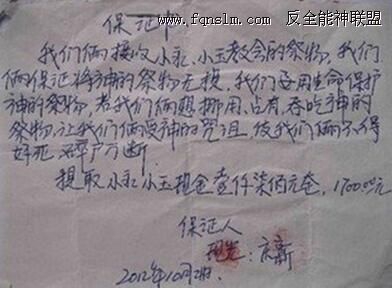 www.fqnslm.com 反全能神联盟
保证书
我们俩接收小私、小玉教会的祭物，我们
俩保证将神的祭物无损，我们要用生命保护
神的祭物，若我们俩想挪用、占有、吞吃神的
祭物，让我们俩受神的咒诅，使我们俩不得
好死，碎尸万断
提取小私小玉现金壹仟柒佰元整，1700.00元
保证人
：庆新
2012年10月2日